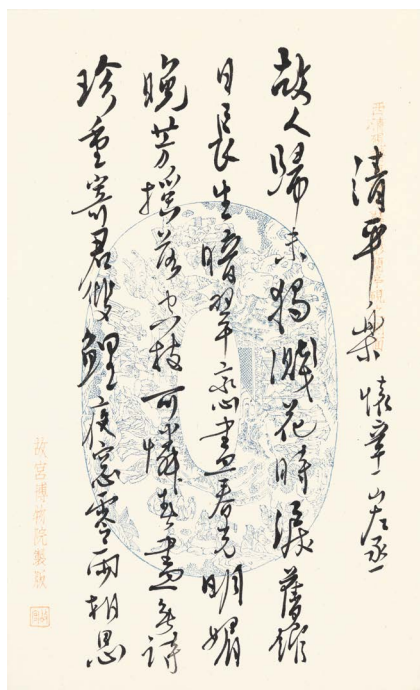 清平樂 懷山左丞
故人歸未獨濺花時淚舊
日長生暗翠盡春光明媚
晚芳搖落空枝可憐春盡無詩
珍重寄君雙鯉夜窗零雨相思
故宮博物院製版